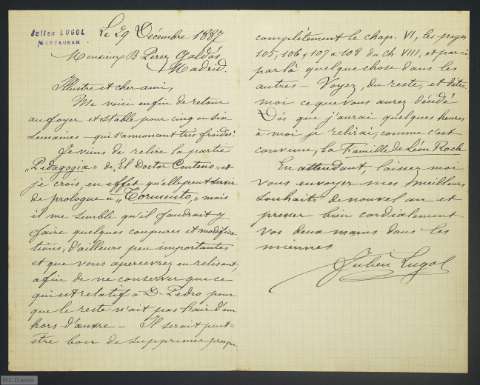 Jules LUGOL
MONTAUBAN
Le 29 Décembre 1887
Monsieur B. Perez Galdós
Madrid.
Illustre et cher ami,
Me voici enfin de retour
au foyer et stable pour cinq ou six
semaines – qui s'annoncent très froides!
Je viens de relire la partie
"Pedagogia" de El Doctor Centeno, et
je crois, en effet qu'elle peut servir
de prologue à "Tormento", mais
il me semble qu'il faudrait y
faire quelques coupures et modifica-
tions, d'ailleurs peu importantes
et que vous apercevrez en relisant,
afin de ne conserver que ce
qui est relatif à D. Pedro pour
que le reste n'ait pas l'air d'un
hors d'œuvre – Il serait peut-
être bon de supprimer presque
complètement le chap. VI, les pages
105, 106, 107 et 108 du Ch VIII, et par ci
par là quelque chose dans les
autres – Voyez, du reste, et dites
moi ce que vous aurez décidé
Dès que j'aurai quelques heures
à moi je relirai, comme c'est
convenu, la Famille de Léon Roch
En attendant laissez moi
vous envoyer mes meilleurs
souhaits de nouvel an et
presser bien cordialement
vos deux mains dans les
miennes
Julien Lugol